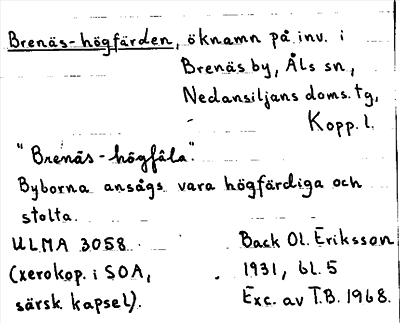 Brenäs-högfärden, öknamn på inv. i
Brenäs by, Åls sn,
Nedansiljans doms. tg,
Kopp. l.
"Brenäs-högfåla".
Byborna ansågs vara högfärdiga och
stolta.
ULMA 3058
(xerokop. i SOA,
särsk. kapsel).
Back Ol. Eriksson
1931, bl. 5
Exc. av T.B. 1968.